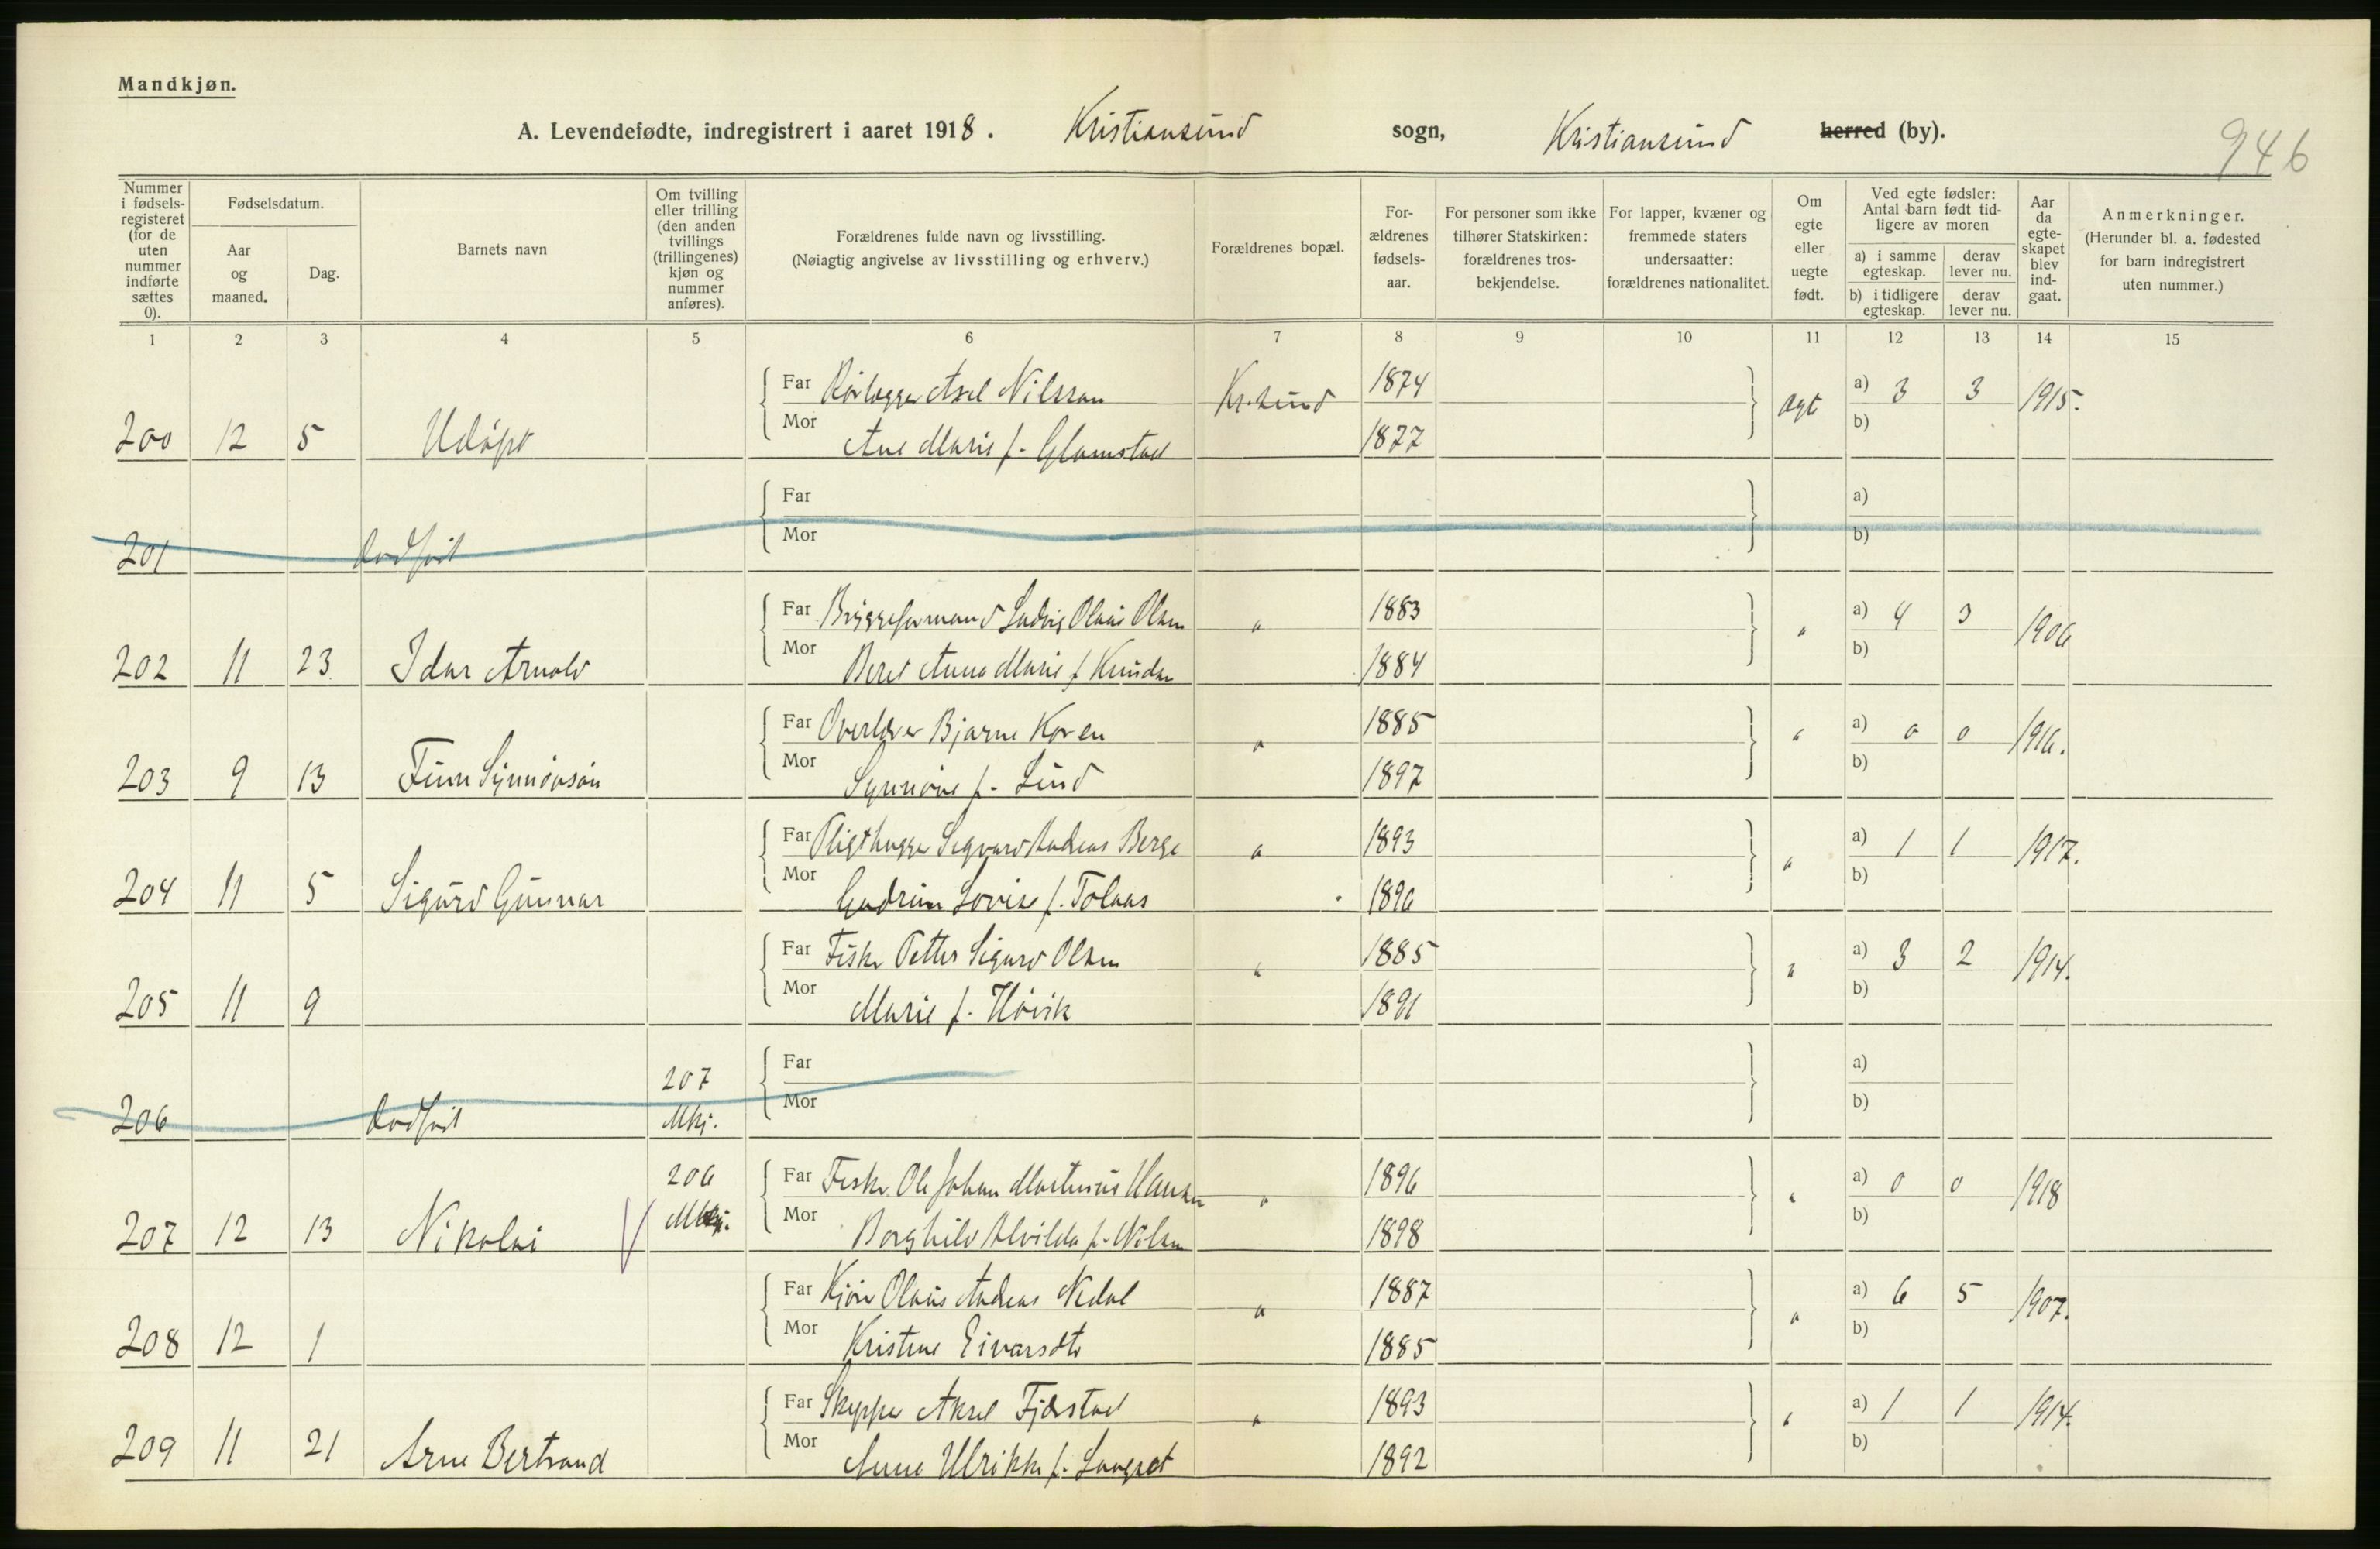 Mandkjøn.
A. Levendefødte, indregistrert i aaret 1918. Kristiansund sogn, Kristiansund herred (by).
946
Nummer i fødsels-registeret (for de uten nummer indførte sættes 0).
Fødselsdatum.
Aar og maaned.
Dag.
Barnets navn
Om tvilling eller trilling (den anden tvillings (trillingenes) kjøn og nummer anføres).
Forældrenes fulde navn og livsstilling.
(Nøiagtig angivelse av livsstilling og erhverv.)
Forældrenes bopæl.
For-ældrenes fødsels-aar.
For personer som ikke tilhører Statskirken: forældrenes tros-bekjendelse.
For lapper, kvæner og fremmede staters undersaatter: forældrenes nationalitet.
Om egte eller uegte født.
Ved egte fødsler: Antal barn født tid-ligere av moren
a) i samme egteskap.
derav lever nu.
b) i tidligere egteskap.
derav lever nu.
Aar da egte-skapet blev ind-gaat.
Anmerkninger.
(Herunder bl. a. fødested for barn indregistrert uten nummer.)
1 2 3 4 5 6 7 8 9 10 11 12 13 14 15
Far Rørlegger Axel Nilssen Kr.sund 1874 ægt a) 3 3 1915.
200 12 5 Udøpt Mor Ane Marie f. Glamstad 1877 b)
Far a)
201 Dødfød Mor b)
Far Bryggeformand Ludvig Olaus Olsen " 1883 " a) 4 3 1906
202 11 23 Idar Arnold Mor Beret Anna Marie f. Knudsen 1884 b)
Far Overlærer Bjarne Koren " 1885 " a) 0 0 1916.
203 9 13 Finn Synnøvsøn Mor Synnøve f. Lund 1897 b)
Far Pligthugger Sigvard Andreas Berge " 1893 " a) 1 1 1917.
204 11 5 Sigurd Gunnar Mor Gudrun Lovise f. Tolaas 1896 b)
Far Fisker Petter Sigurd Olsen " 1885 " a) 3 2 1914.
205 11 9 Mor Marie f. Høvik 1891 b)
207 Far a)
206 Dødfød Mkj. Mor b)
206 Far Fisker Ole Johan Martinius Hansen " 1896 " a) 0 0 1918
207 12 13 Nikolai Mkj. Mor Borghild Alvilda f. Nilsen 1898 b)
Far Kjører Olaus Andreas Nedal " 1887 " a) 6 5 1907.
208 12 1 Mor Kristine Eivarsdtr 1885 b)
Far Skipper Aksel Fjærstad " 1893 " a) 1 1 1914.
209 11 21 Arne Bertrand Mor Anne Ulrikke f. Langset 1892 b)